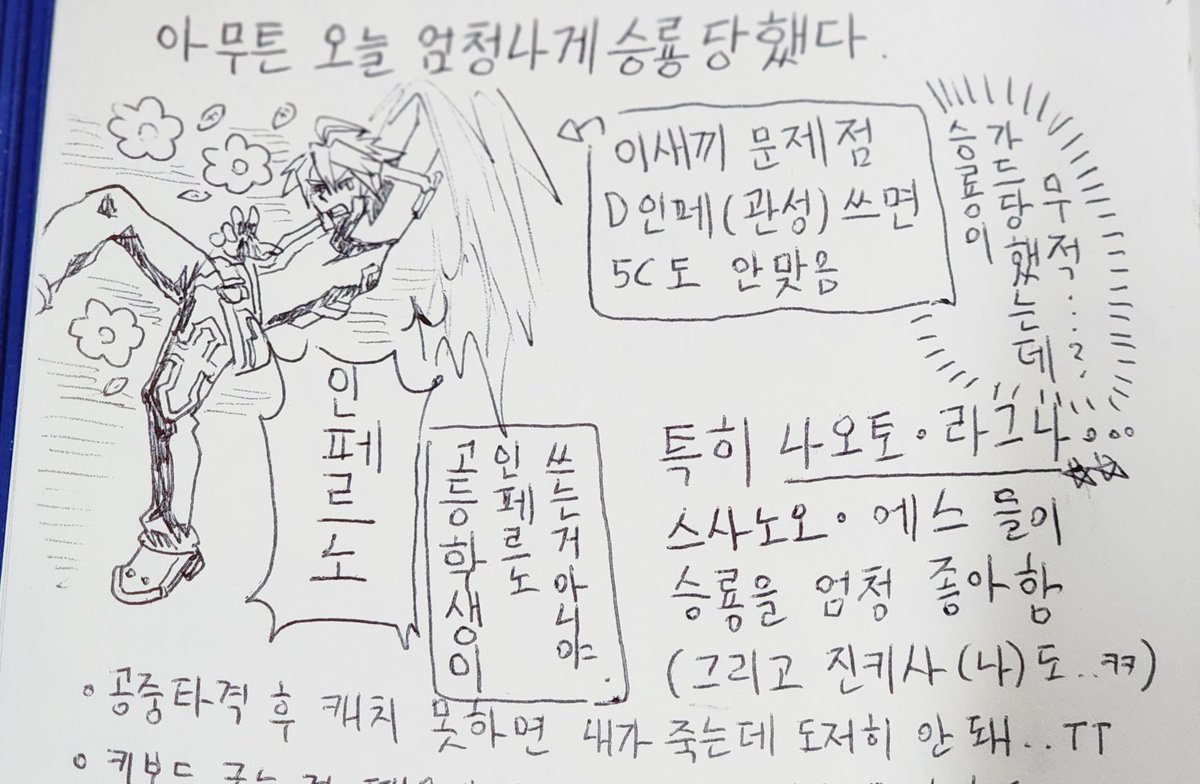 아무튼 오늘 엄청나게 승룡 당했다.
이새끼 문제점
D인페(관성) 쓰면
5C도 안맞음
무적..?
가드당했는데
승룡이
인페르노
쓰는거 아니야.
인페르노
고등학생이
특히 나오토·라그나...
스사노오·에스 들이
승룡을 엄청 좋아함
(그리고 진키사(나)도..ㅋㅋ)
• 공중타격 후 캐치 못하면 내가 죽는데 도저히 안돼..ㅜㅜ
• 키보드